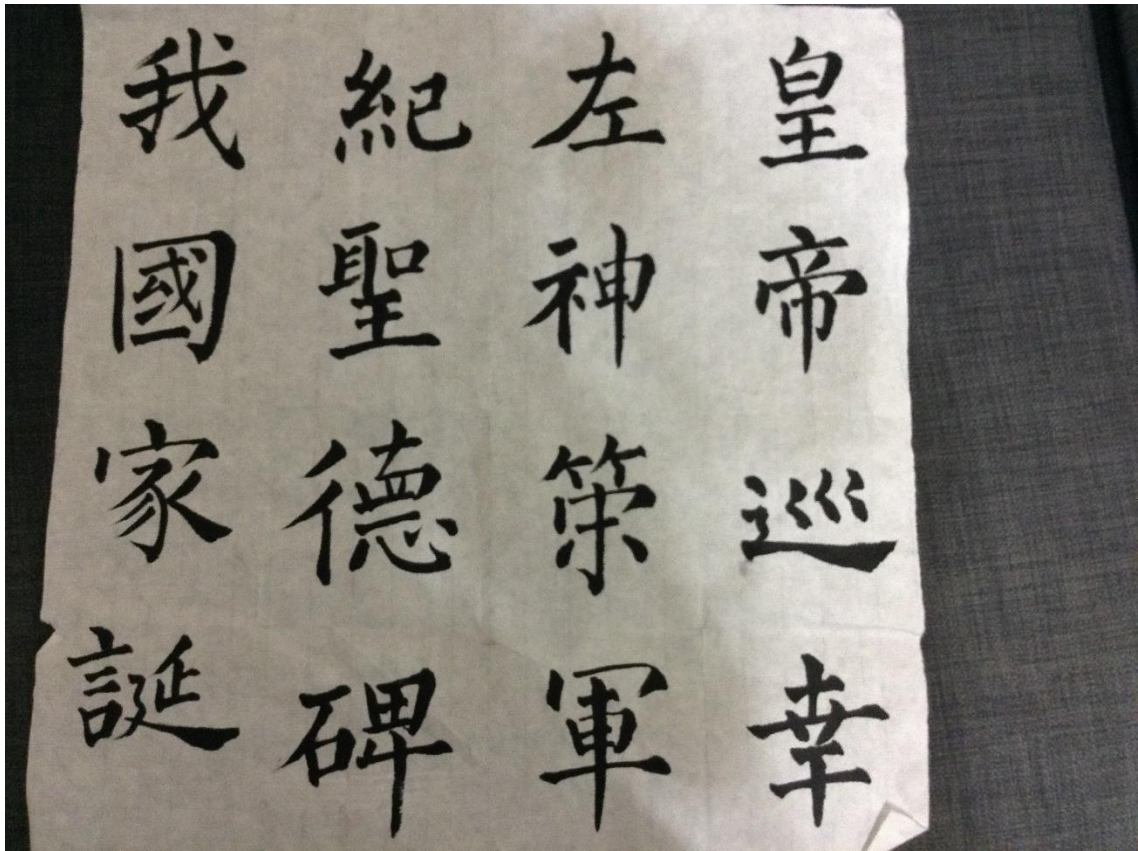 皇帝巡幸
左神策軍
紀聖德碑
我國家誕